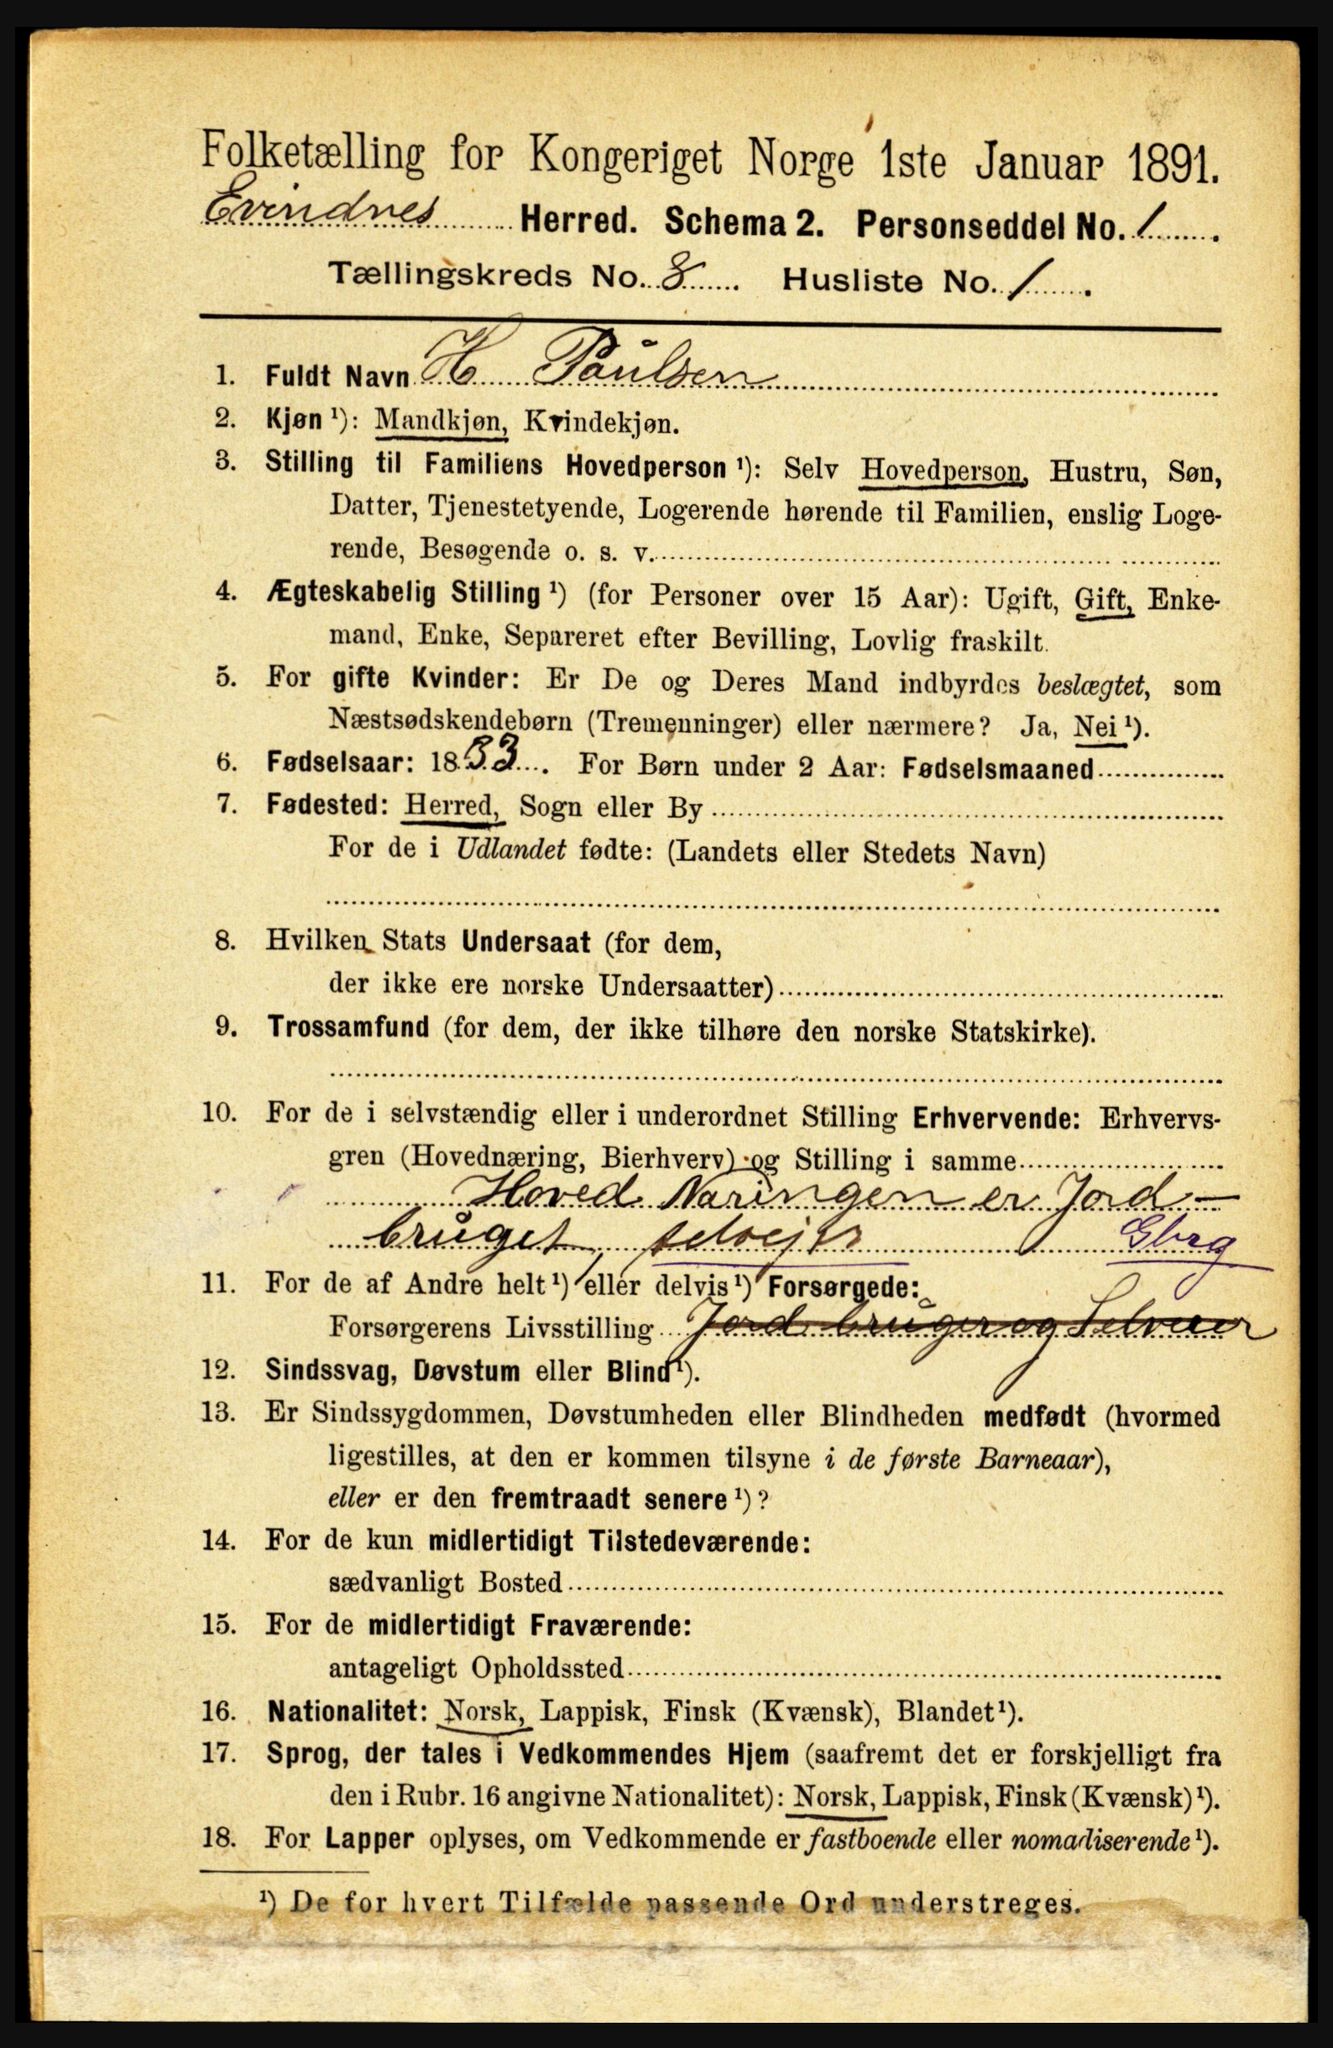 Folketælling for Kongeriget Norge 1ste Januar 1891.
Evindnes Herred. Schema 2. Personseddel No. 1.
Tællingskreds No. 8. Husliste No. 1.
1. Fuldt Navn H Paulsen
2. Kjøn ¹): Mandkjøn, Kvindekjøn.
3. Stilling til Familiens Hovedperson ¹): Selv Hovedperson, Hustru, Søn,
Datter, Tjenestetyende, Logerende hørende til Familien, enslig Loge-
rende, Besøgende o. s. v.
4. Ægteskabelig Stilling ¹) (for Personer over 15 Aar): Ugift, Gift, Enke-
mand, Enke, Separeret efter Bevilling, Lovlig fraskilt.
5. For gifte Kvinder: Er De og Deres Mand indbyrdes beslægtet, som
Næstsødskendebørn (Tremenninger) eller nærmere? Ja, Nei ¹).
6. Fødselsaar: 1833. For Børn under 2 Aar: Fødselsmaaned
7. Fødested: Herred, Sogn eller By
For de i Udlandet fødte: (Landets eller Stedets Navn)
8. Hvilken Stats Undersaat (for dem,
der ikke ere norske Undersaatter)
9. Trossamfund (for dem, der ikke tilhøre den norske Statskirke).
10. For de i selvstændig eller i underordnet Stilling Erhvervende: Erhvervs-
gren (Hovednæring, Bierhverv) og Stilling i samme
Hoved Næringen er Jord-
bruget, selvejer Gbrg
11. For de af Andre helt ¹) eller delvis ¹) Forsørgede:
Forsørgerens Livsstilling Jord bruger og Selveier
12. Sindssvag, Døvstum eller Blind ¹).
13. Er Sindssygdommen, Døvstumheden eller Blindheden medfødt (hvormed
ligestilles, at den er kommen tilsyne i de første Barneaar),
eller er den fremtraadt senere ¹)?
14. For de kun midlertidigt Tilstedeværende:
sædvanligt Bosted
15. For de midlertidigt Fraværende:
antageligt Opholdssted
16. Nationalitet: Norsk, Lappisk, Finsk (Kvænsk), Blandet ¹).
17. Sprog, der tales i Vedkommendes Hjem (saafremt det er forskjelligt fra
den i Rubr. 16 angivne Nationalitet): Norsk, Lappisk, Finsk (Kvænsk) ¹).
18. For Lapper oplyses, om Vedkommende er fastboende eller nomadiserende ¹).
¹) De for hvert Tilfælde passende Ord understreges.